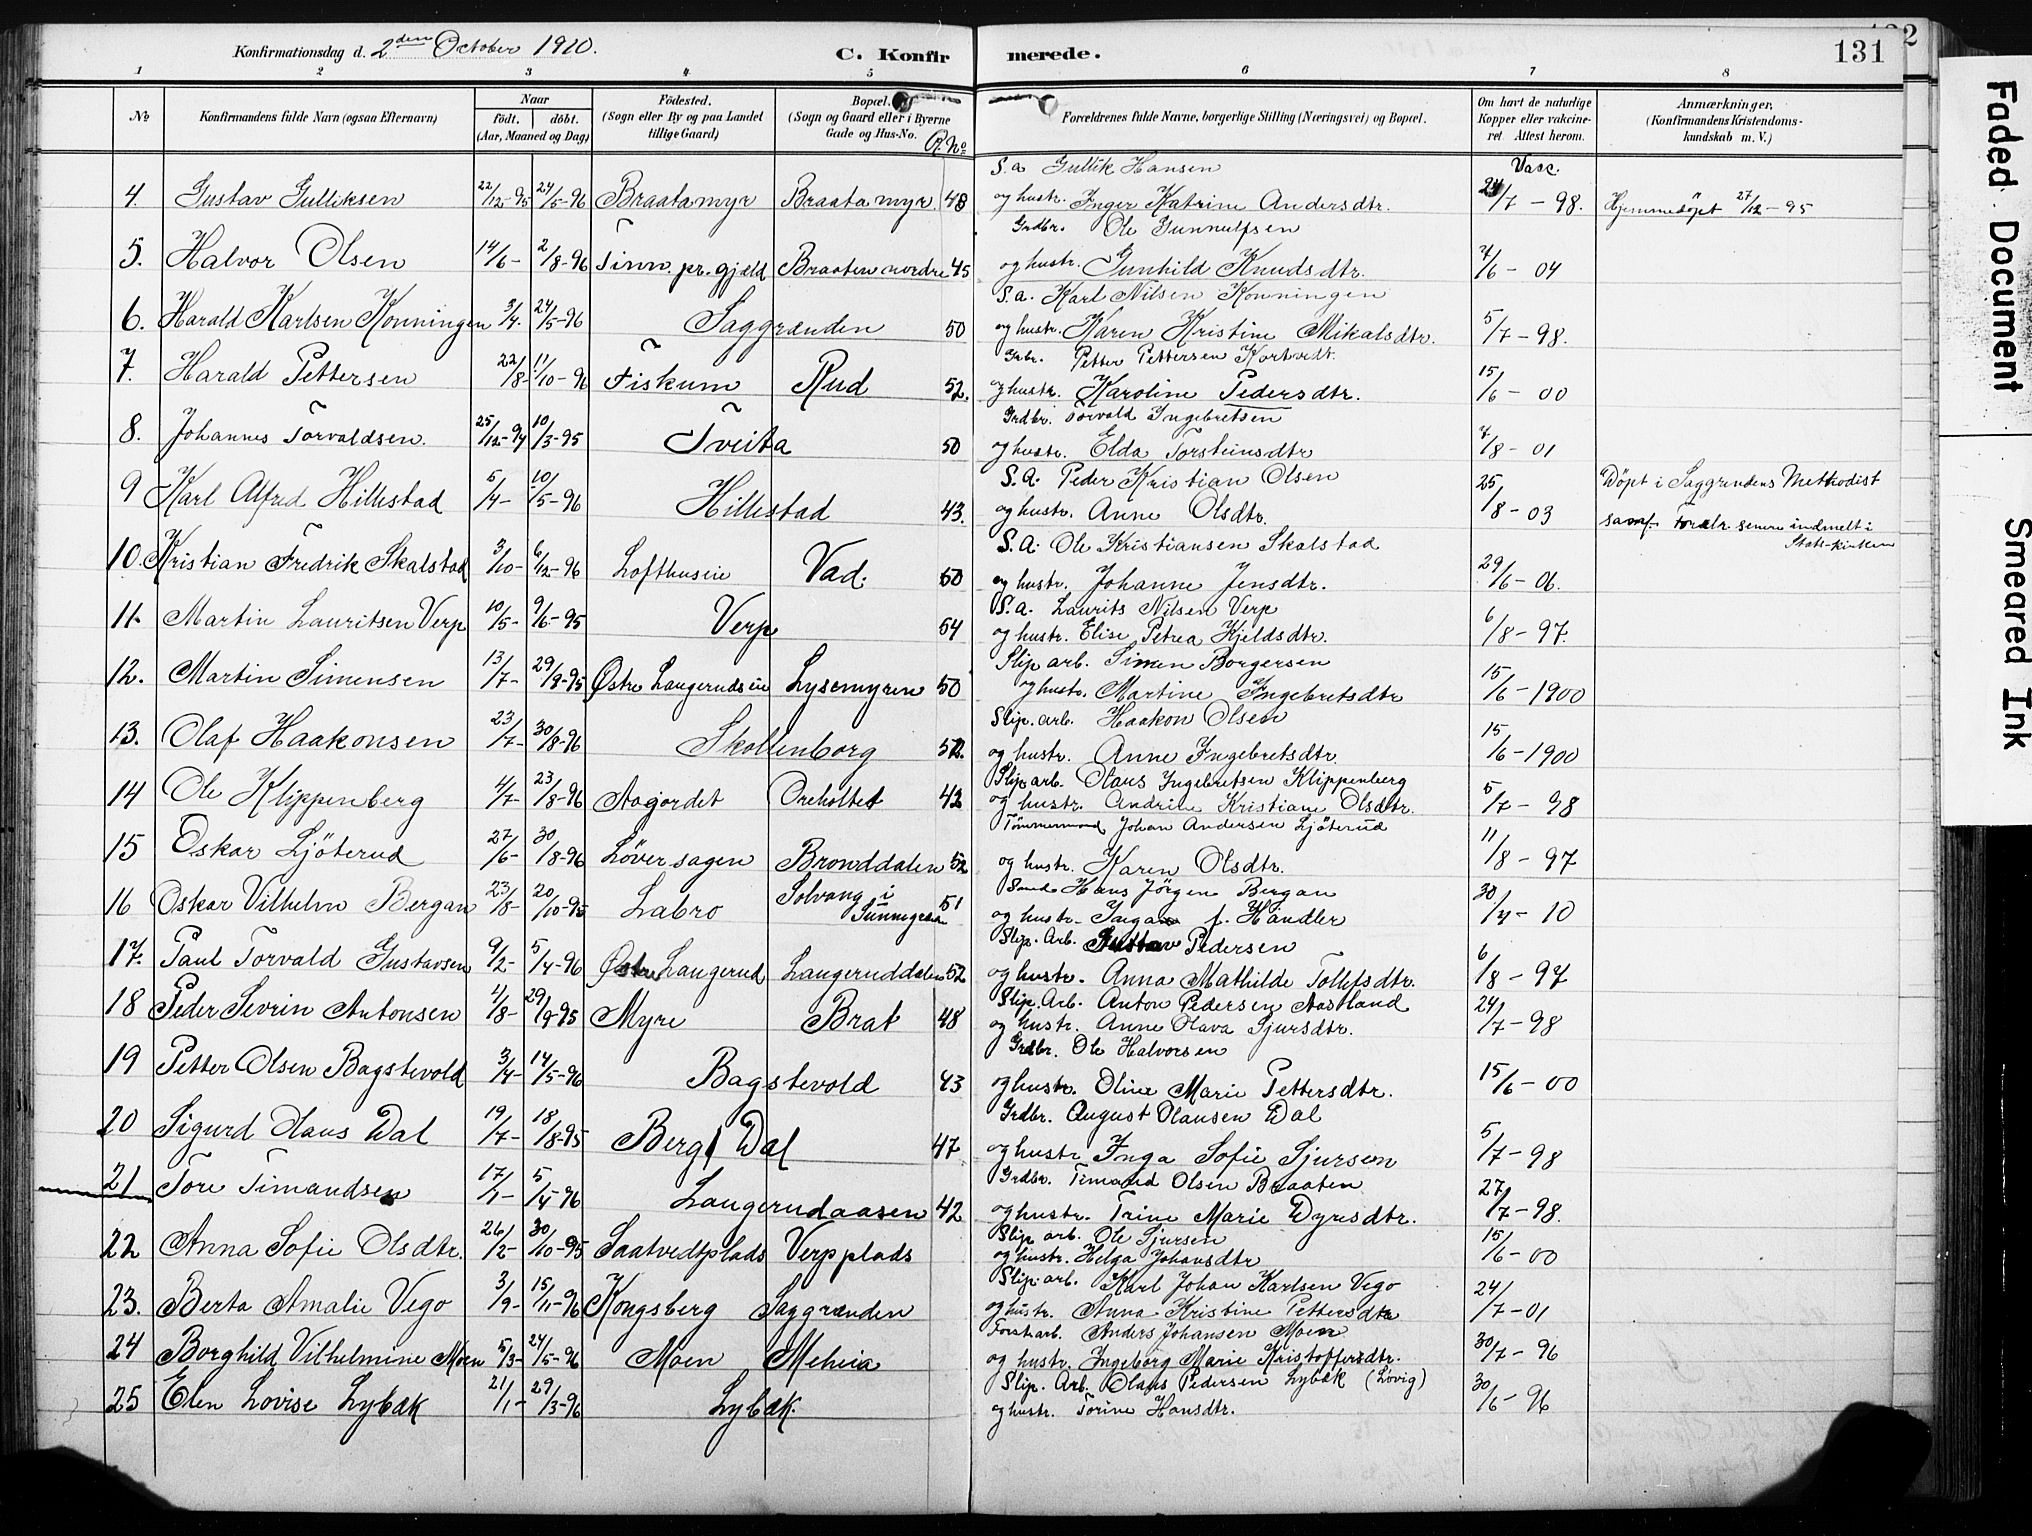 Konfirmationsdag d. 2den October 1910. C. Konfirmerede. 131
1 2 3 4 5 6 7 8
No Konfirmandens fulde Navn (ogsaa Efternavn) Naar födt. döbt. (Aar, Maaned og Dag) Födested. (Sogn eller By og paa Landet tillige Gaard) Bopæl. (Sogn og Gaard eller i Byerne Gade og Hus-No. R. No Forældrenes fulde Navne, borgerlige Stilling (Næringsvei) og Bopæl. Om havt de naturlige Kopper eller vakcineret. Attest herom. Anmærkninger, (Konfirmandens Kristendomskundskab m. V.)
S. a. Gullik Hansen Vacc.
4. Gustav Gulliksen 22/12-95 24/5-96 Braatamyr Braatamyr. 48 og hustr. Inger Katrine Andersdtr. 24/7-98. Hjemmedöpt 27/12-95
Grdbr. Ole Gunnulfsen
5. Halvor Olsen 14/6- 2/8-96 Tinn pr.gjæld Braaten nordre 45 og hustr. Gunhild Knudsdtr. 7/6-04
S. a. Karl Nilsen Konningen
6. Harald Karlsen Konningen 3/4. 24/5-96 Saggrænden 50 og hustr. Karen Kristine Mikalsdtr. 5/7-98.
Grbr. Petter Pettersen Kortvedt.
7. Harald Pettersen 22/8- 11/10-96 Fiskum Rud 52. og hustr. Karoline Pedersdtr. 15/6-00
Grdbr. Torvald Ingebretsen
8. Johannes Torvaldsen. 25/12-94 10/3-95 Tveita 50 og hustr. Elda Torsteinsdtr 7/8-01
S. a. Peder Kristian Olsen Döpt i Saggrendens Methodist
9 Karl Alfred Hillestad 5/4- 10/5-96 Hillestad 43. og hustr. Anne Olsdtr. 25/8-03 samf. Forældr. senere indmelt i
S. a. Ole Kristiansen Skalstad Stats-kirken
10. Kristian Fredrik Skalstad 3/10- 6/12-96 Lofthuseie Vad. 50 og hustr. Johanne Jensdtr. 29/6-06.
S. a. Laurits Nilsen Verp
11. Martin Lauritsen Verp 10/5- 9/6-95 Verp 54 og hustr. Elise Petrea Kjeldsdtr. 6/8-97.
Slip arb. Simen Borgersen
12. Martin Simensen 13/7- 29/9-95 Østre Langerudseie Lysemyren 50 og hustr. Martine Ingebretsdtr 15/6-1900
Slip. arb. Haakon Olsen
13. Olaf Haakonsen 23/7- 30/8-96 Skollenborg 52. og hustr. Anne Ingebretsdtr. 15/6-1900
Slip. arb. Olaus Ingebretsen Klippenberg
14 Ole Klippenberg 4/7- 23/8-96 Aagordet Oreholtet 42 og hustr. Andrine Kristiane Olsdtr. 5/7-98
Tömmermand Johan Andersen Ljöterud
15 Oskar Ljöterud 27/6- 30/8-96 Löversagen Bronddalen 52 og hustr. Karen Olsdtr. 11/8-97
Hans Jörgen Bergan
16 Oskar Vilhelm Bergan 23/8- 20/10-95 Labro Solvang i 51 og hustr. Inga f. Handler 30/4-10
Slip. Arb. Gustav Pedersen
17. Paul Torvald Gustavsen 9/2- 5/4-96 Østre Langerud Langeruddalen 52 og hustr. Anna Mathilde Tollefsdtr. 6/8-97
Slip. Arb. Anton Pedersen Aastland
18 Peder Sevrin Antonsen 4/8- 29/9-95 Myre Brat 48 og hustr. Anne Olava Sjursdtr. 24/7-98
Grdbr. Ole Halvorsen
19 Petter Olsen Bagstevold 3/4- 14/5-96 Bagstevold 43 og hustr. Oline Marie Pettersdtr. 15/6-00
Grdbr. August Olausen Dal
20 Sigurd Olaus Dal 19/7- 18/8-95 Berg / Dal 47 og hustr Inga Sofie Sjursen 5/7-98
Grdbr. Timand Olsen Braaten
21 Tore Timandsen 17/1- 5/4-96 Langerudaasen 42 og hustr. Trine Marie Dyresdtr. 27/7-98.
Slip. arb. Ole Sjursen
22 Anna Sofie Olsdtr. 26/2- 30/10-95 Saatvedtplads Verpplads og hustr. Helga Johansdtr 15/6-00
Slip. arb. Karl Johan Karlsen Vego
23. Berta Amalie Vego 3/9- 15/11-96 Kongsberg Saggranden og hustr. Anna Kristine Pettersdtr 24/7-01
Forst arb. Anders Johansen Moen
24 Borghild Vilhelmine Moen 5/3- 24/5-96 Moen Meheia og hustr. Ingeborg Marie Kristoffersdtr. 30/7-96
Slip. Arb. Olaus Pedersen Lybæk (Lövig)
25 Elen Lovise Lybæk 21/1- 29/3-96 Lybæk. og hustr. Torine Hansdtr. 30/6-96
Faded Document
Smeared Ink